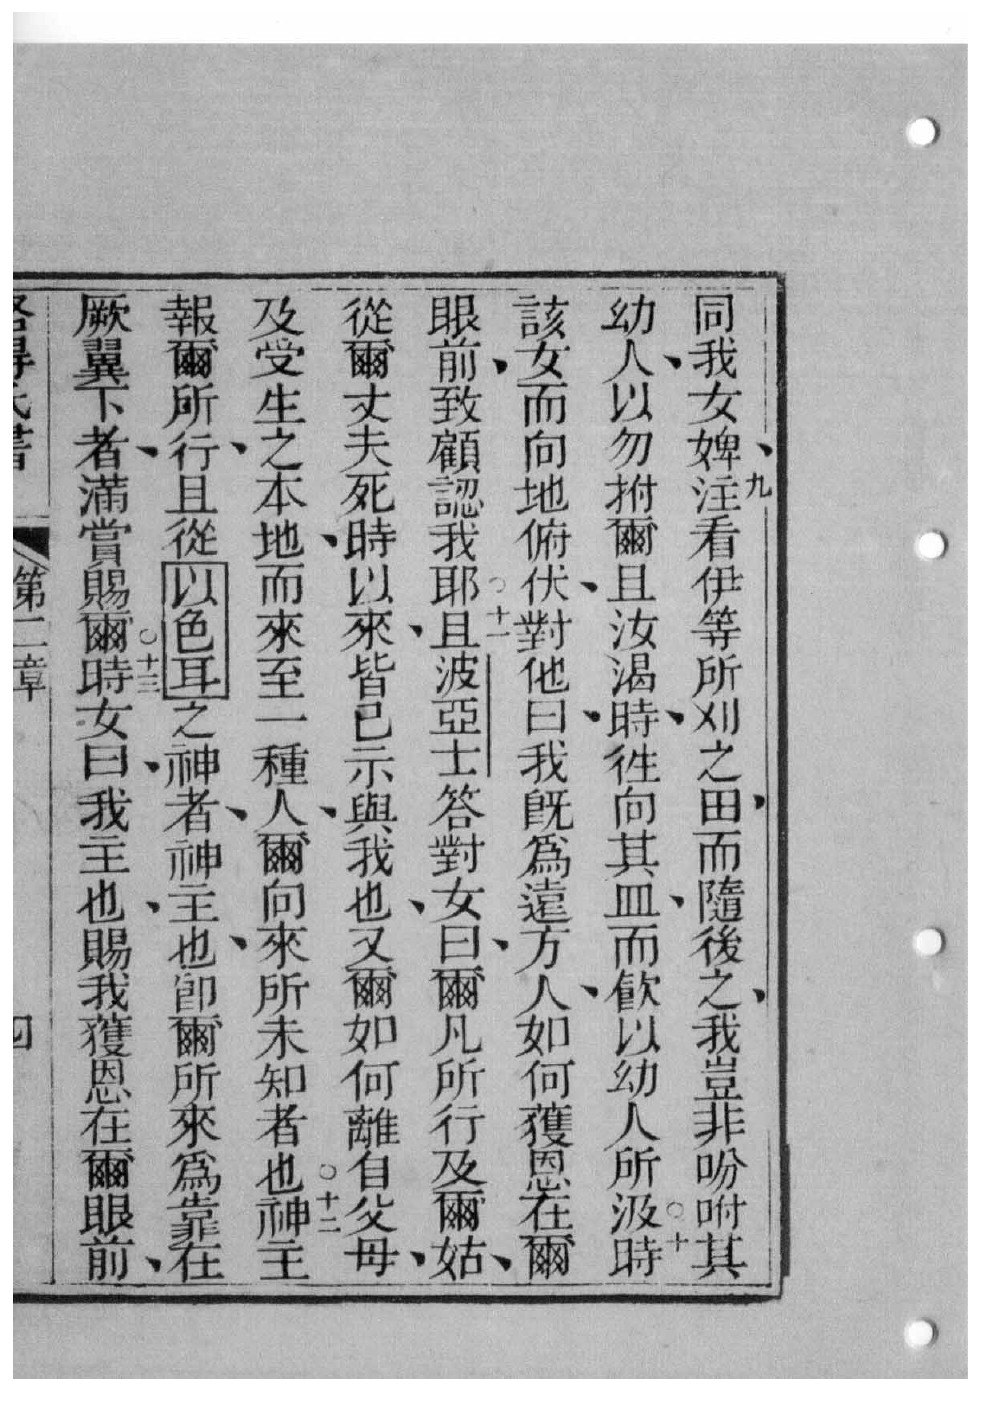 同我女婢、九注看伊等所刈之田、而隨後之、我豈非吩咐其
幼人、以勿拊爾且汝渴時、徃向其皿、而飲以幼人所汲時○十
該女而向地俯伏、對他曰、我旣爲遠方人、如何獲恩在爾
眼前、致顧認我耶○十一且波亞士答對女曰、爾凡所行及爾姑、
從爾丈夫死時以來、皆已示與我也、又爾如何離自父母、
及受生之本地、而來至一種人、爾向來所未知者也○十二神主
報爾所行、且從以色耳之神者、神主也、卽爾所來爲靠在
厥翼下者、滿賞賜爾○十三時女曰、我主也、賜我獲恩在爾眼前、
第二章
四